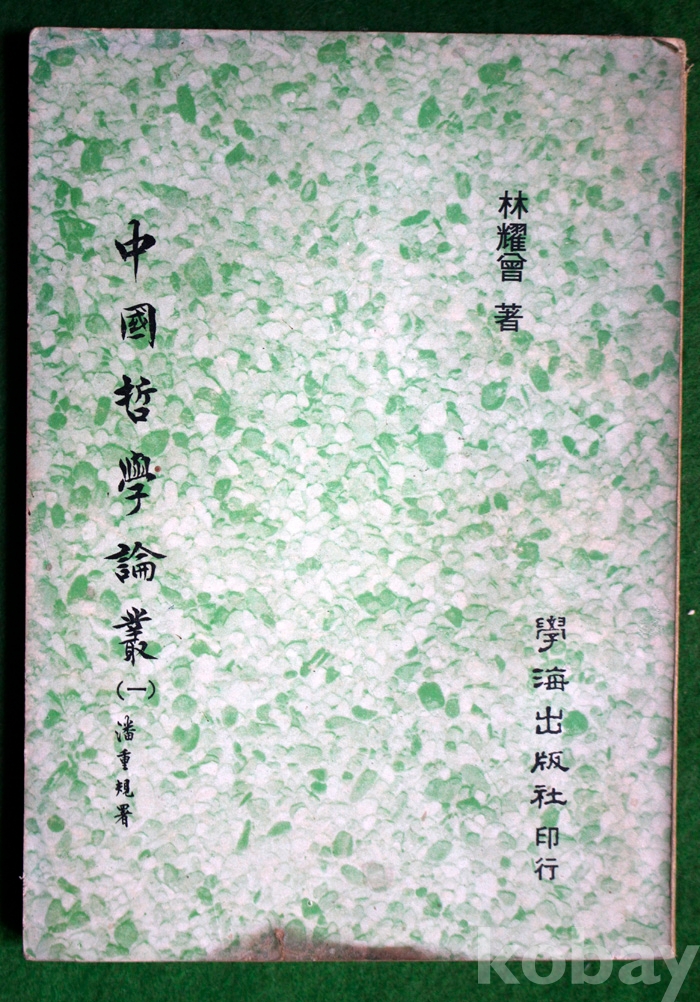 林耀曾 著
中國哲學論叢(一)
潘重規署
學海出版社 印行
kobay